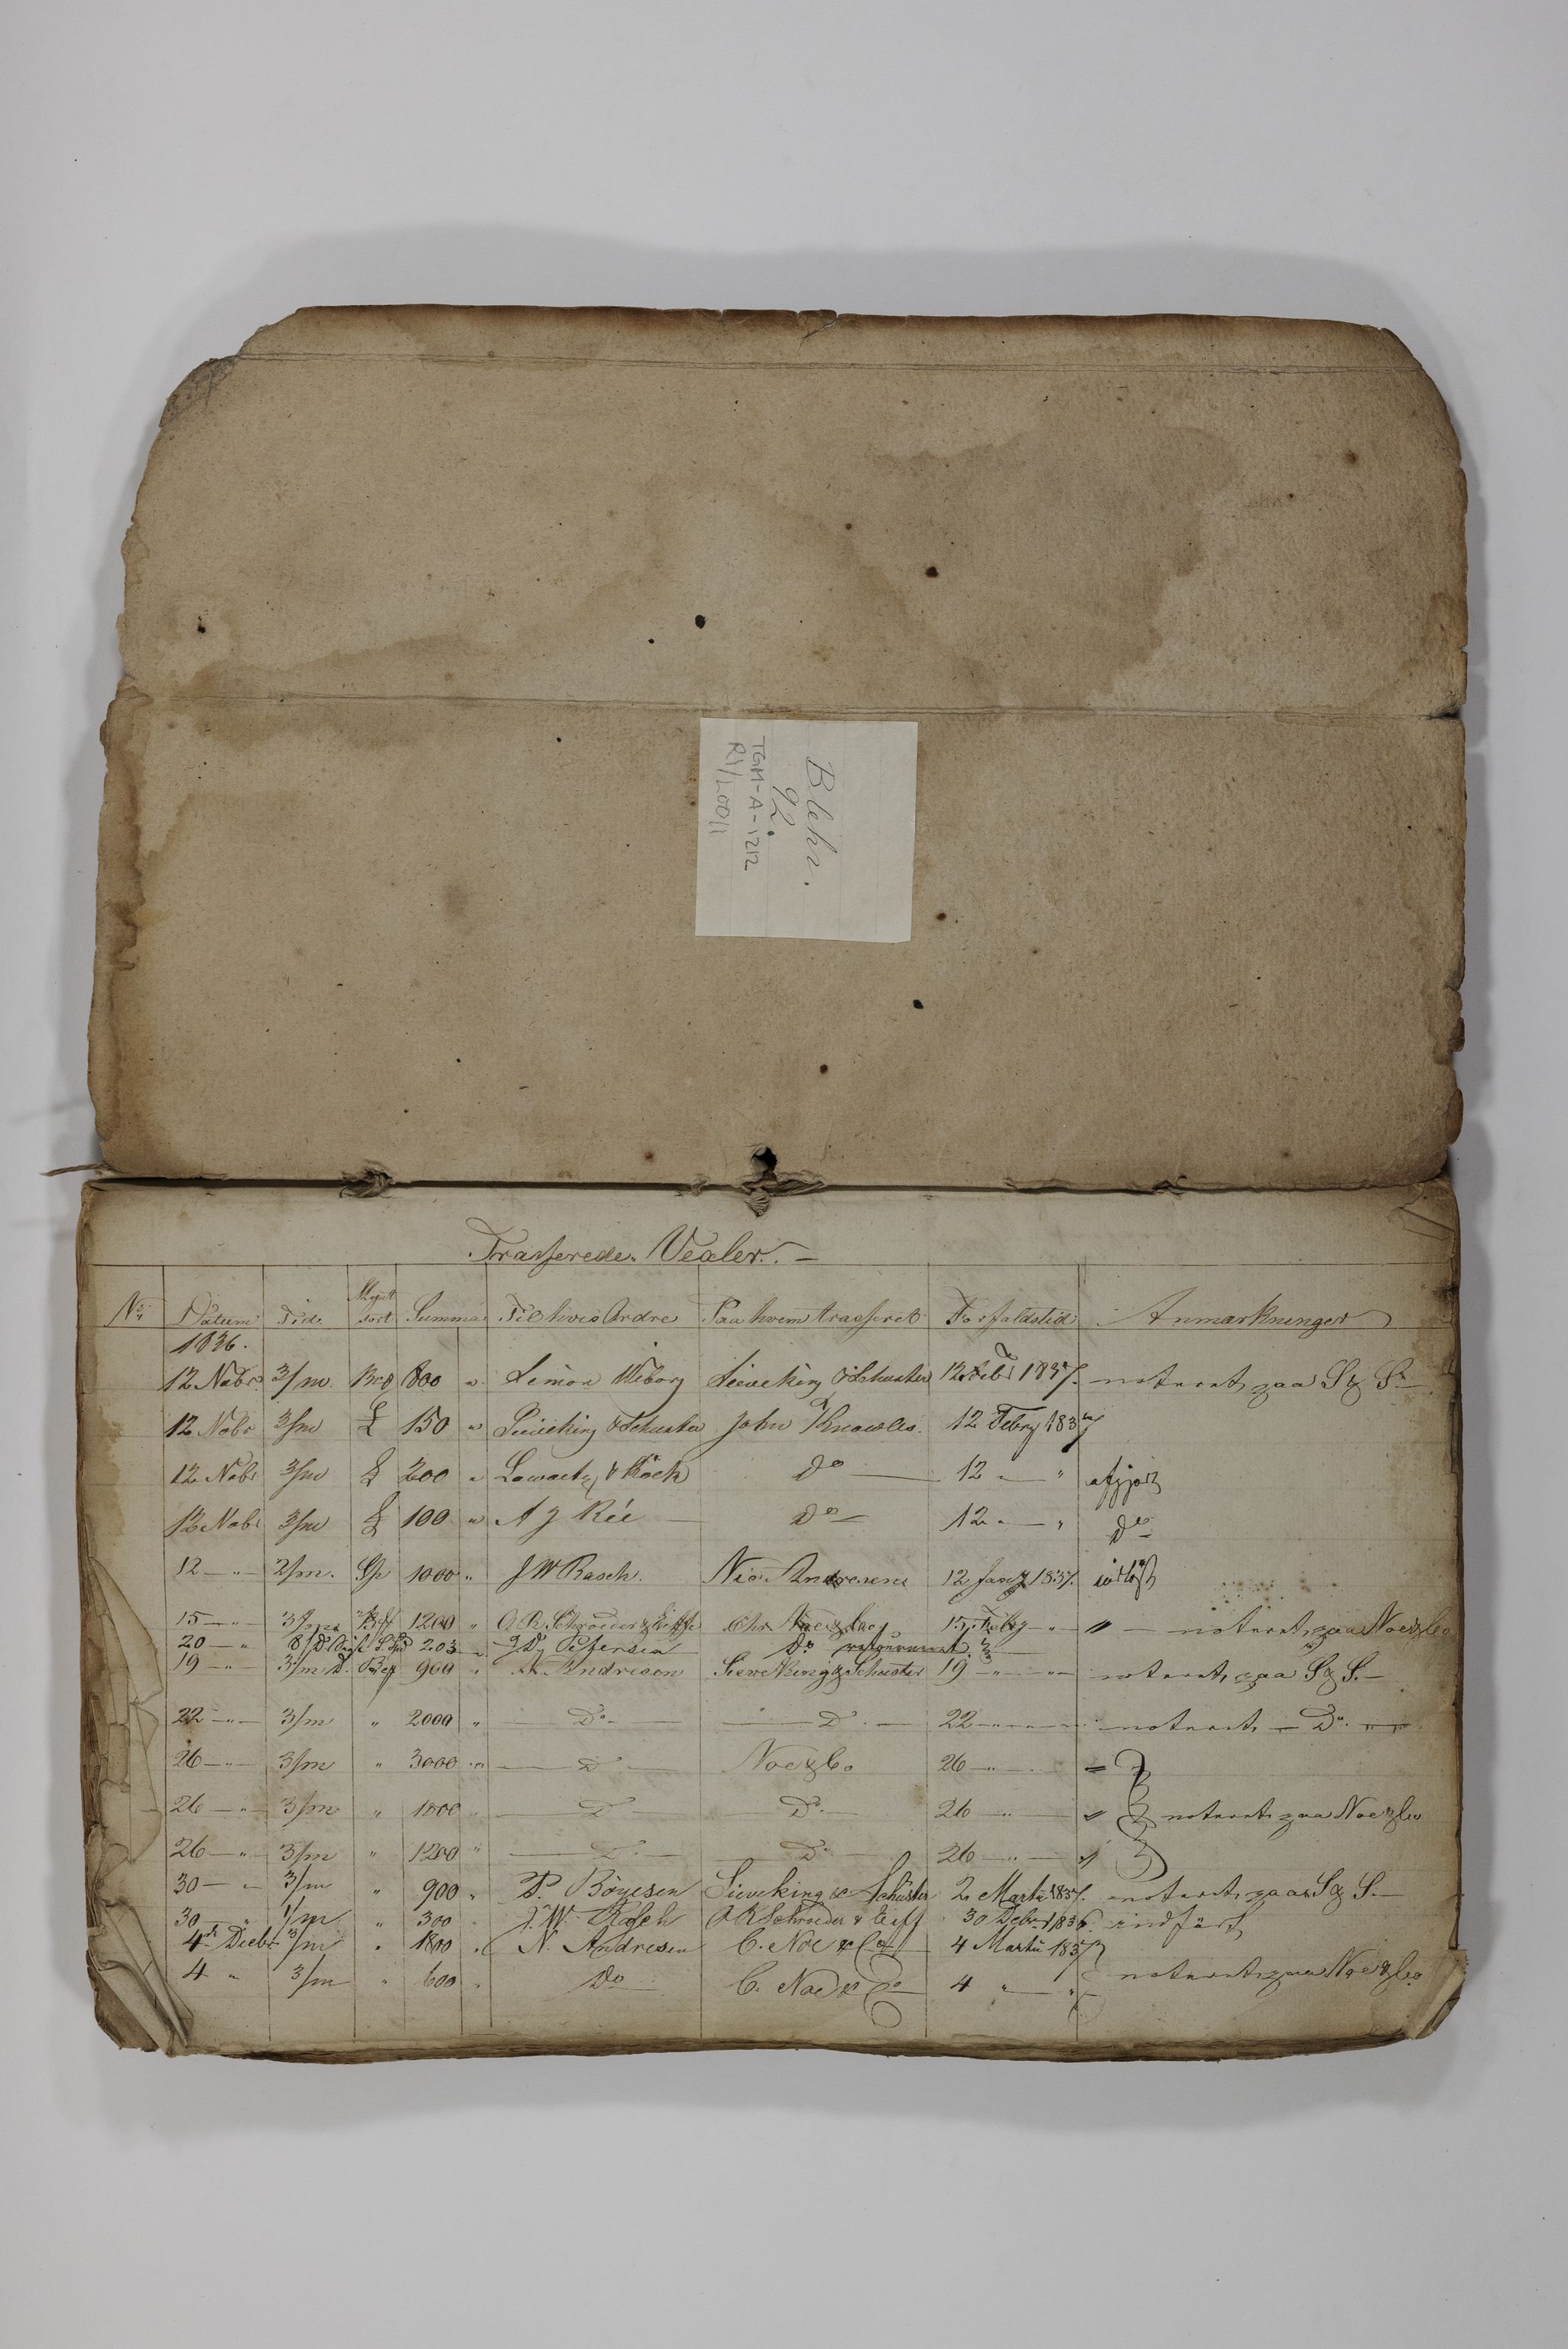 Blehr.
92.
TGM-A-1212
R4/20011
Trasserede Vexler. —
No Datum Tid Mynt sort Summa Til hvis Ordre Paa hvem trasseret Forfaldstid Anmærkninger
1836.
12 Nobr. 3/m. Bco 800 " Simon Wiborg Sieveking & Schuster 12 Feb 1837. noteret paa S & S —
12 Nobr 3/m £ 150 " Sieveking & Schuster John Knowles 12 Febry 1837
12 Nobr 3/m £ 200 " & Koch Do — 12 — " afgjort
12 Nobr 3/m £ 100 " A J Rée — Do — 12 — " Do —
12 — " — 2/m. Sp 1000 " J W Rasch. Nic. Andresen 12 Jany 1837. indløst
15 — " — 3/m 1200 " A R Schroeder & Eiffe Chr Noe & Co 15 Febry — " — " — noteret paa Noe & Co
20 — " 8/D 203 " J D Petersen Do retourneret
19 — " 3/m D. 900 " N. Andresen Sieveking & Schuster 19 — " — noteret paa S & S. —
22 — " — 3/m " 2000 " — Do — — Do — 22 — " — noteret — Do —
26 — " — 3/m " 3000 " — Do — Noe & Co 26 — " — "
26 — " — 3/m " 1800 " — Do — — Do — 26 — " — " noteret paa Noe & Co
26 — " — 3/m " 1200 " — Do — — Do — 26 — " — "
30 — " 3/m " 900 " P. Böyesen Sieveking & Schuster 2 Martii 1837. noteret paa S & S. —
30 " 1/m " 300 " J. W. Rasch A R Schröder & Eiff 30 Debr 1836. indført
4de Decbr 3/m " 1800 " N. Andresen C. Noe & Co 4 Martii 1837
4 " 3/m " 600 " Do C. Noe & Co 4 " — " noteret paa Noe & Co